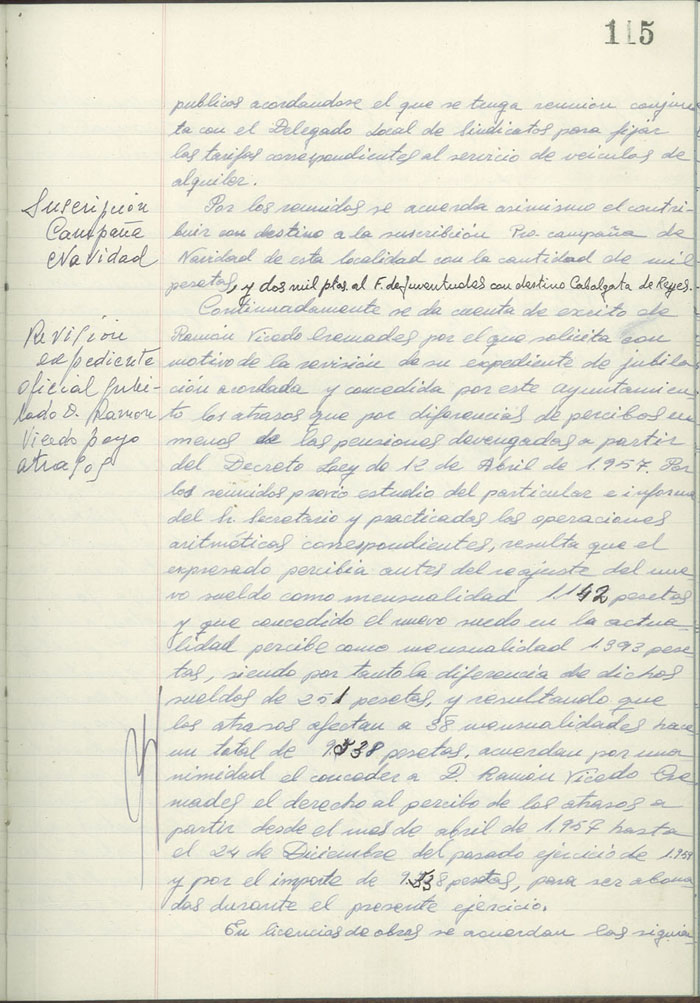 115
publicos acordandose el que se tenga reunion conjun
ta con el Delegado Local de Sindicatos para fijar
las tarifas correspondientes al servicio de veiculos de
alquiler.
Suscripción
Campaña
Navidad
Por los reunidos se acuerda asimismo el contri
buir con destino a la suscribción Pro. campaña de
Navidad de esta localidad con la cantidad de mil
pesetas, y dos mil ptas. al F. de Juventudes con destino Cabalgata de Reyes.
Revisión
expediente
oficial jubi-
lado D. Ramon
Vicedo pago
atrasos
Continuadamente se da cuenta de escrito de
Ramón Vicedo Cremades por el que solicita con
motivo de la revisión de su expediente de jubila
ción acordada y concedida por este ayuntamien
to los atrasos que por diferencias de percibos en
menos de las pensiones devengadas a partir
del Decreto Ley de 12 de Abril de 1.957. Por
los reunidos previo estudio del particular e informe
del Sr. Secretario y practicadas las operaciones
aritméticas correspondientes, resulta que el
expresado percibia antes del reajuste del nue
vo sueldo como mensualidad 1.142 pesetas
y que concedido el nuevo suedo en la actua-
lidad percibe como mensualidad 1.393 pese
tas, siendo por tanto la diferencia de dichos
sueldos de 251 pesetas, y resultando que
los atrasos afectan a 38 mensualidades hace
un total de 9.538 pesetas. acuerdan por una
nimidad el conceder a D. Ramón Vicedo Cre
mades el derecho al percibo de los atrasos a
partir desde el mes de abril de 1.957 hasta
el 24 de Diciembre del pasado ejercicio de 1.959
y por el importe de 9.538 pesetas, para ser abona
das durante el presente ejercicio.
En licencias de obras se acuerdan las siguien-